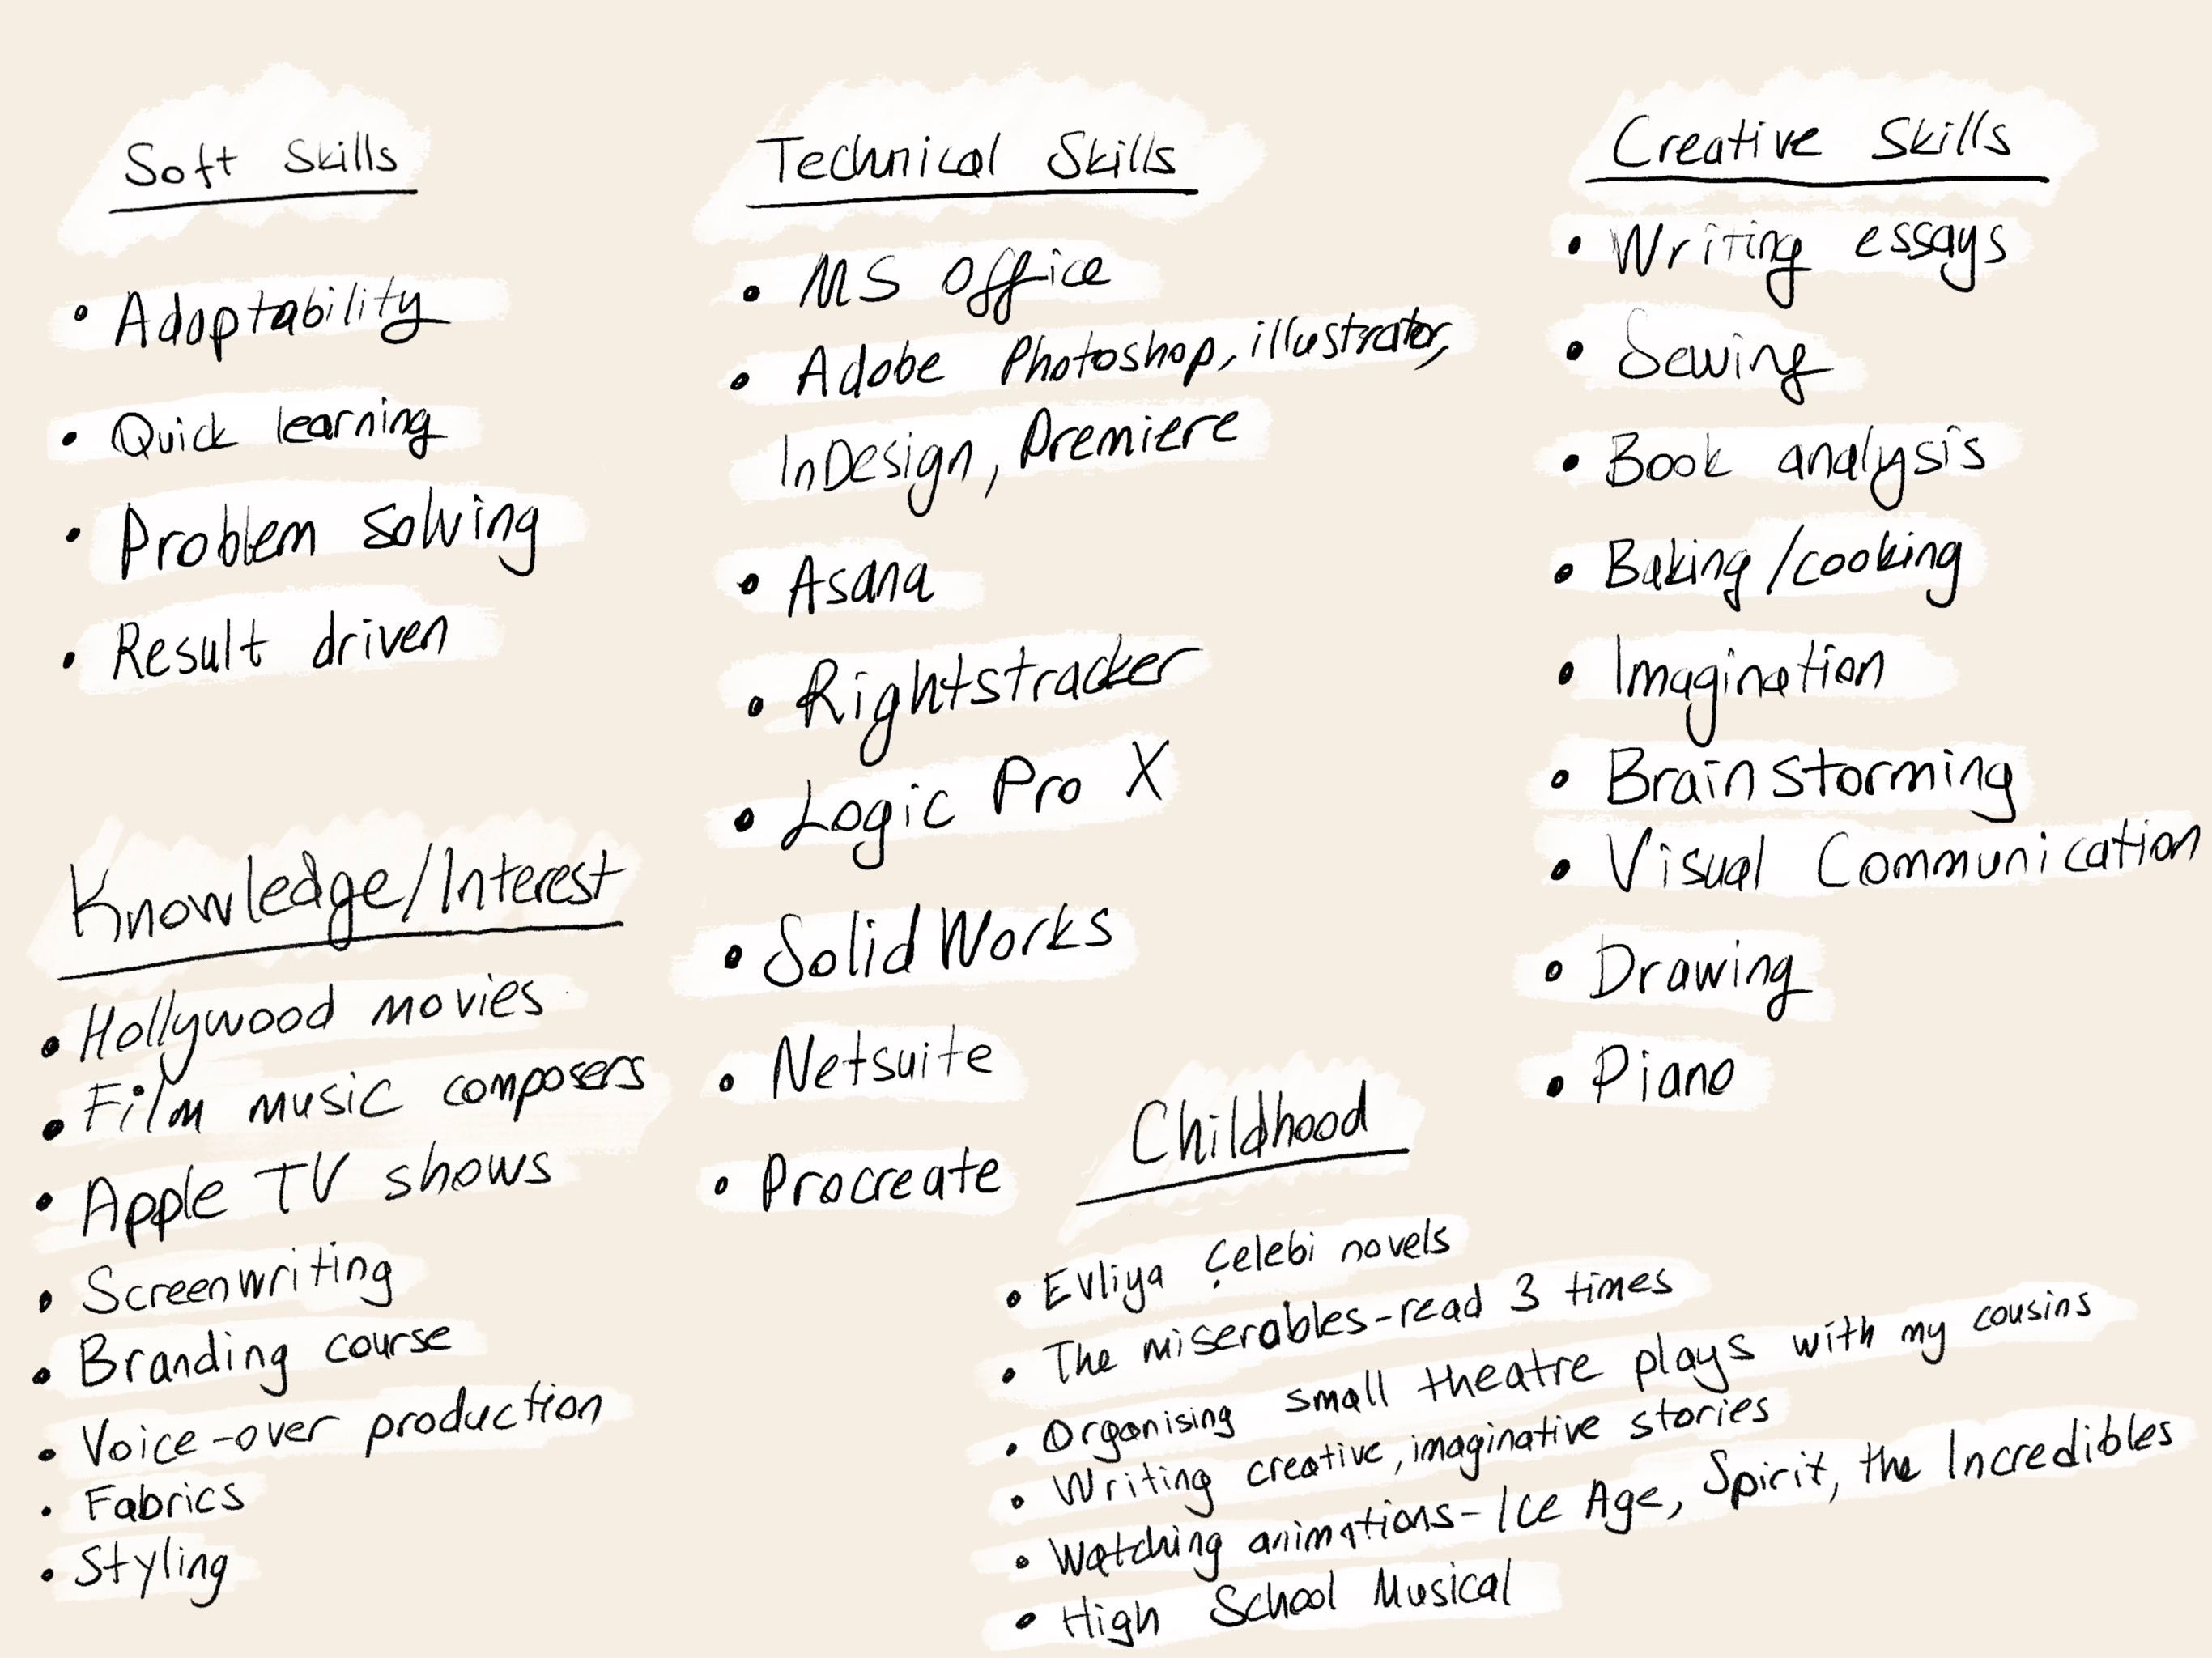 Soft Skills
• Adaptability
• Quick learning
• Problem solving
• Result driven
Knowledge/Interest
• Hollywood movies
• Film music composers
• Apple TV shows
• Screenwriting
• Branding course
• Voice-over production
• Fabrics
• Styling
Technical Skills
• MS Office
• Adobe Photoshop, illustrator,
InDesign, Premiere
• Asana
• Rightstracker
• Logic Pro X
• SolidWorks
• Netsuite
• Procreate
Creative Skills
• Writing essays
• Sewing
• Book analysis
• Baking/cooking
• Imagination
• Brainstorming
• Visual Communication
• Drawing
• Piano
Childhood
• Evliya Çelebi novels
• The miserables-read 3 times
• Organising small theatre plays with my cousins
• Writing creative, imaginative stories
• Watching animations- Ice Age, Spirit, the Incredibles
• High School Musical